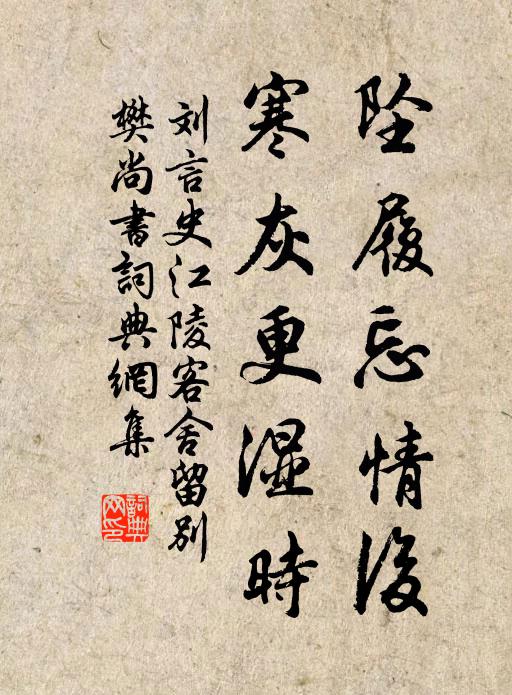 坠履忘情後
寒灰更湿時
刘言史江陵客舍留別
樊尚書詞典網集
詞典
网印